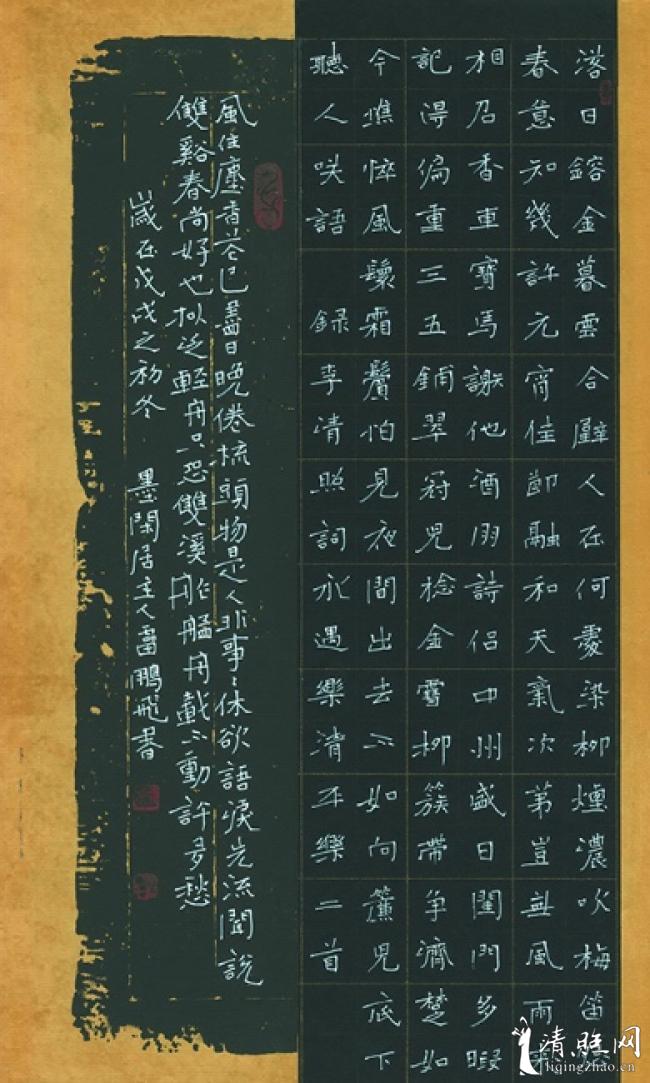 落日鎔金暮雲合璧人在何處染柳煙濃吹梅笛怨
春意知幾許元宵佳節融和天氣次第豈無風雨來
相召香車寶馬謝他酒朋詩侶中州盛日閨門多暇
記得偏重三五鋪翠冠兒捻金雪柳簇帶爭濟楚如
今憔悴風鬟霜鬢怕見夜間出去不如向簾兒底下
聽人咲語 録李清照詞永遇樂清平樂二首
風住塵香花已盡日晚倦梳頭物是人非事〻休欲語淚先流聞說
雙谿春尚好也拟泛輕舟只恐雙溪舴艋舟載不動許多愁
歲在戊戌之初冬 墨閑居主人雷鵬飛書
清照网
liqingzhao.cn